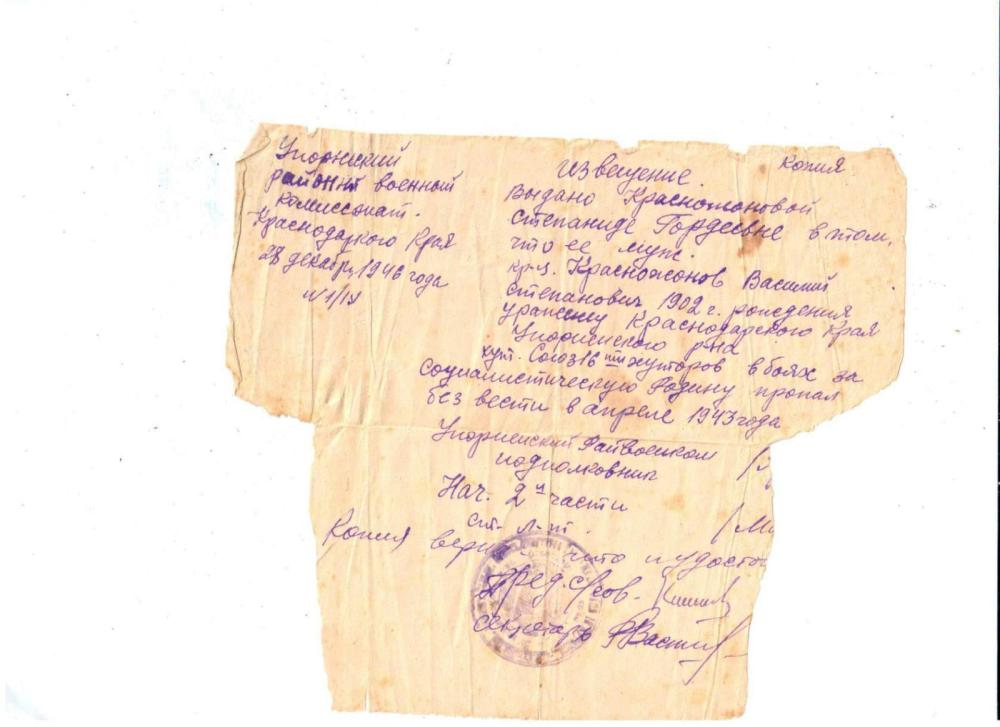 Упорненский
районй военный
комиссопат.
Краснодаркого Края
28 декабря 1946 года
N 1/IV
Копия
извещение.
Выдано Красножоновой
Степаниде Гордеевне в том,
что ее муж.
кр-ц. Красножонов Василий
Степанович 1902 г. рождения
уражену Краснодарского Края
Упорненского р-на
хут. Союз 16ти хуторов в боях за
социалистическую Родину пропал
без вести в апреле 1943 года
Упорненский Райвоенком
подполковник
Нач. 2й части
ст. л-т.
Копия верна что и удосто
Пред. с/сов.
секретарь